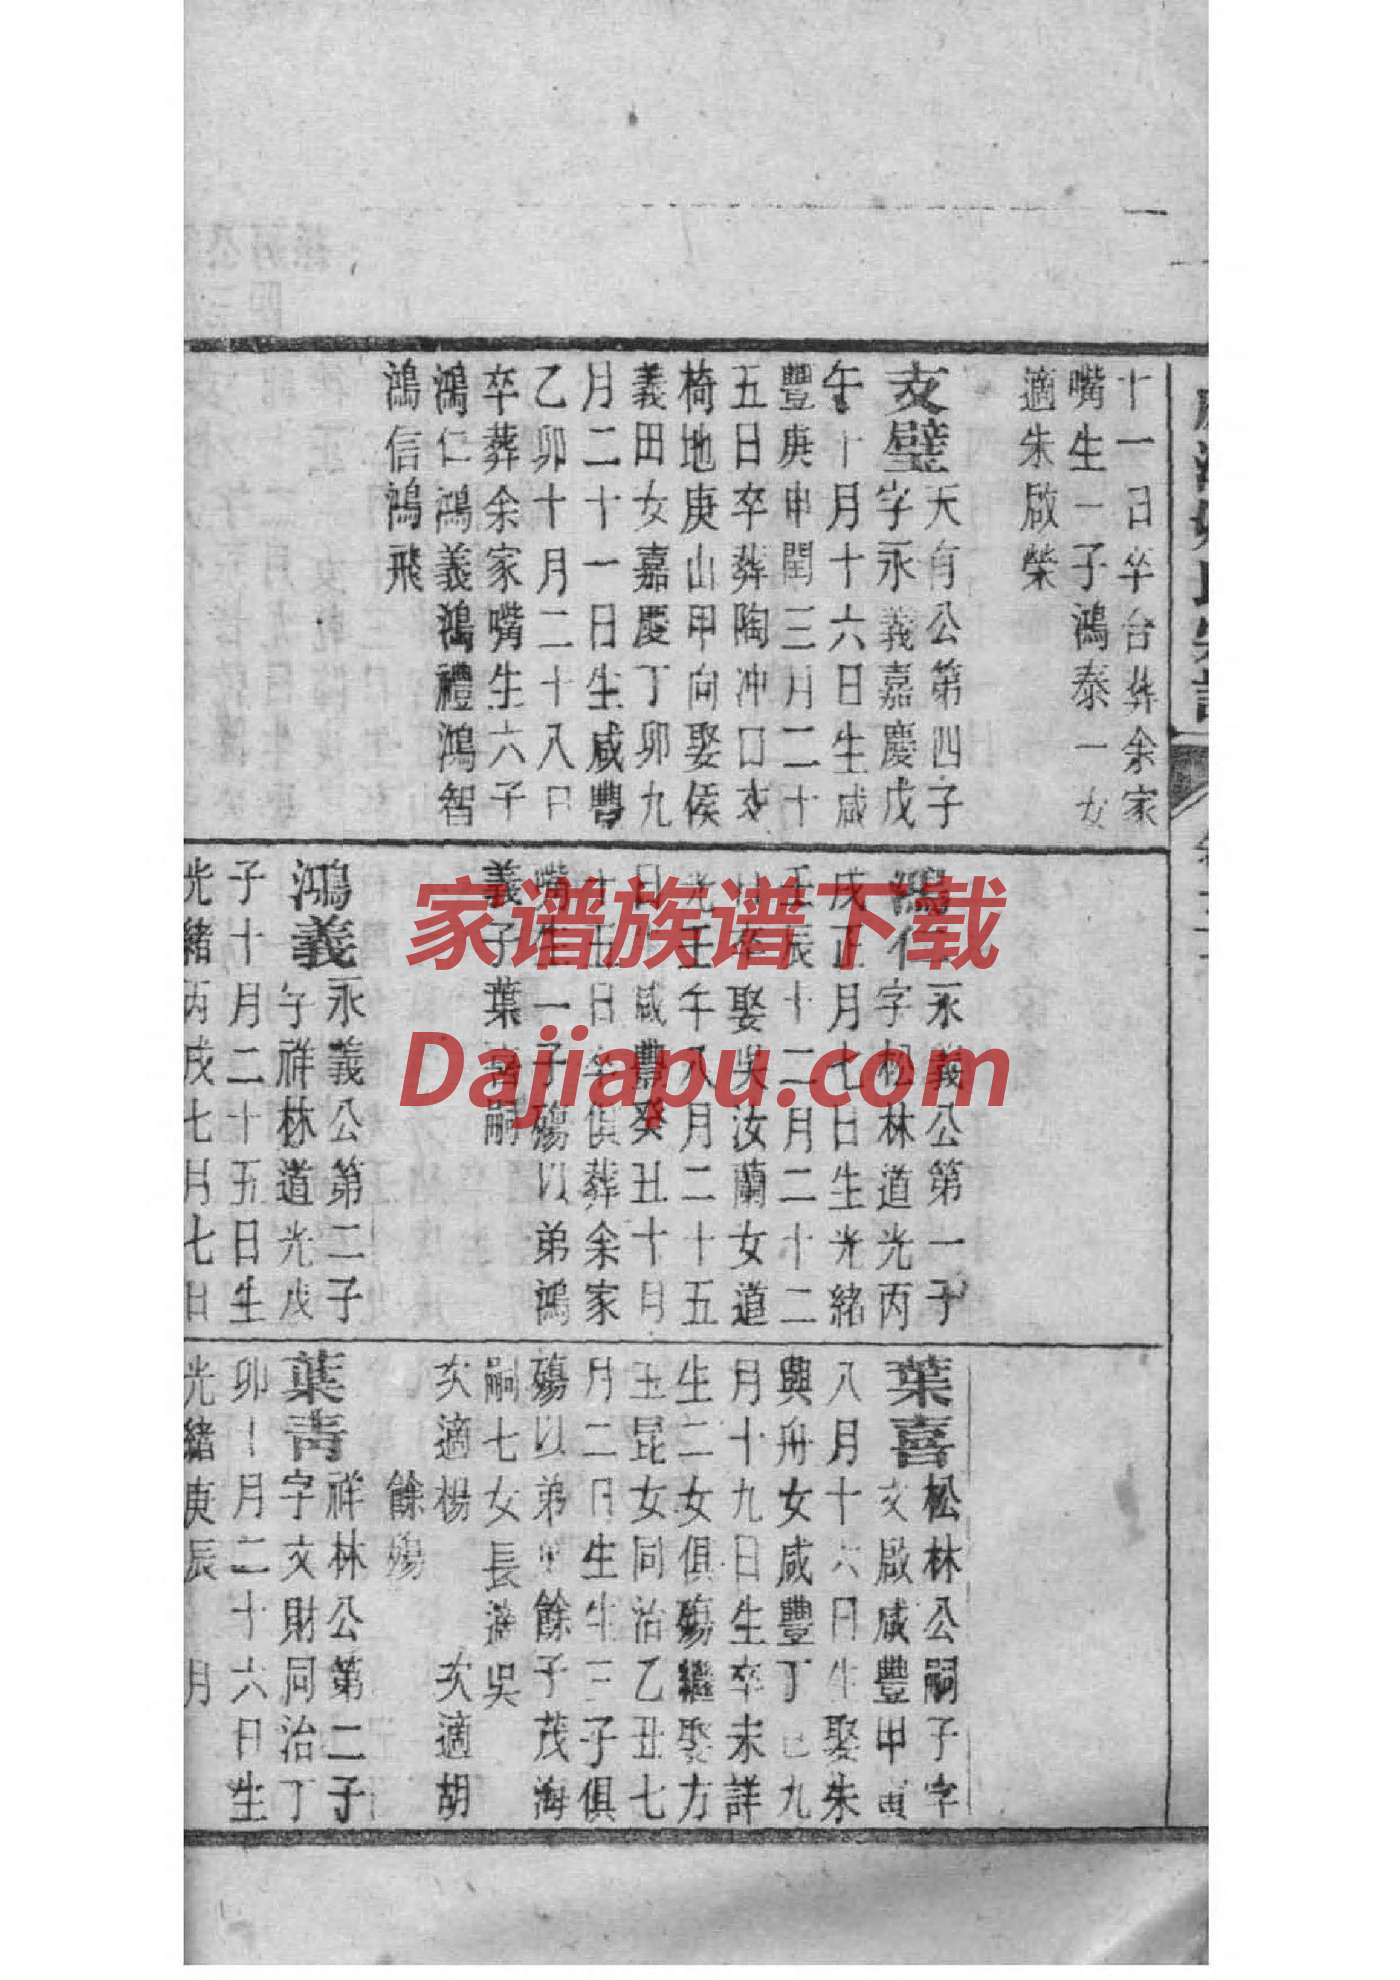 十一日卒合葬余家
嘴生一子鴻泰一女
適朱啟榮
支璧天有公第四子
字永義嘉慶戊
午十月十六日生咸
豐庚申閏三月二十
五日卒葬陶冲口交
椅地庚山甲向娶侯
義田女嘉慶丁卯九
月二十一日生咸豐
乙卯十月二十八日
卒葬余家嘴生六子
鴻仁鴻義鴻禮鴻智
鴻信鴻飛
鴻仁永義公第一子
字松林道光丙
戌正月七日生光緒
壬辰十二月二十二
日卒娶吳汝蘭女道
光壬午八月二十五
日生咸豐癸丑十月
十五日卒俱葬余家
嘴生一子殤以弟鴻
義子葉喜嗣
鴻義永義公第二子
字祥林道光戊
子十月二十五日生
光緒丙戌七月七日
葉喜松林公嗣子字
文啟咸豐甲寅
八月十六日生娶朱
興舟女咸豐丁巳九
月十九日生卒未詳
生二女俱殤繼娶方
玉昆女同治乙丑七
月二日生生三子俱
殤以弟餘子茂海
嗣七女長適吳
次適楊 次適胡
餘殤
葉青祥林公第二子
字文財同治丁
卯十月二十六日生
光緒庚辰 月
家谱族谱下载
Dajiapu.com